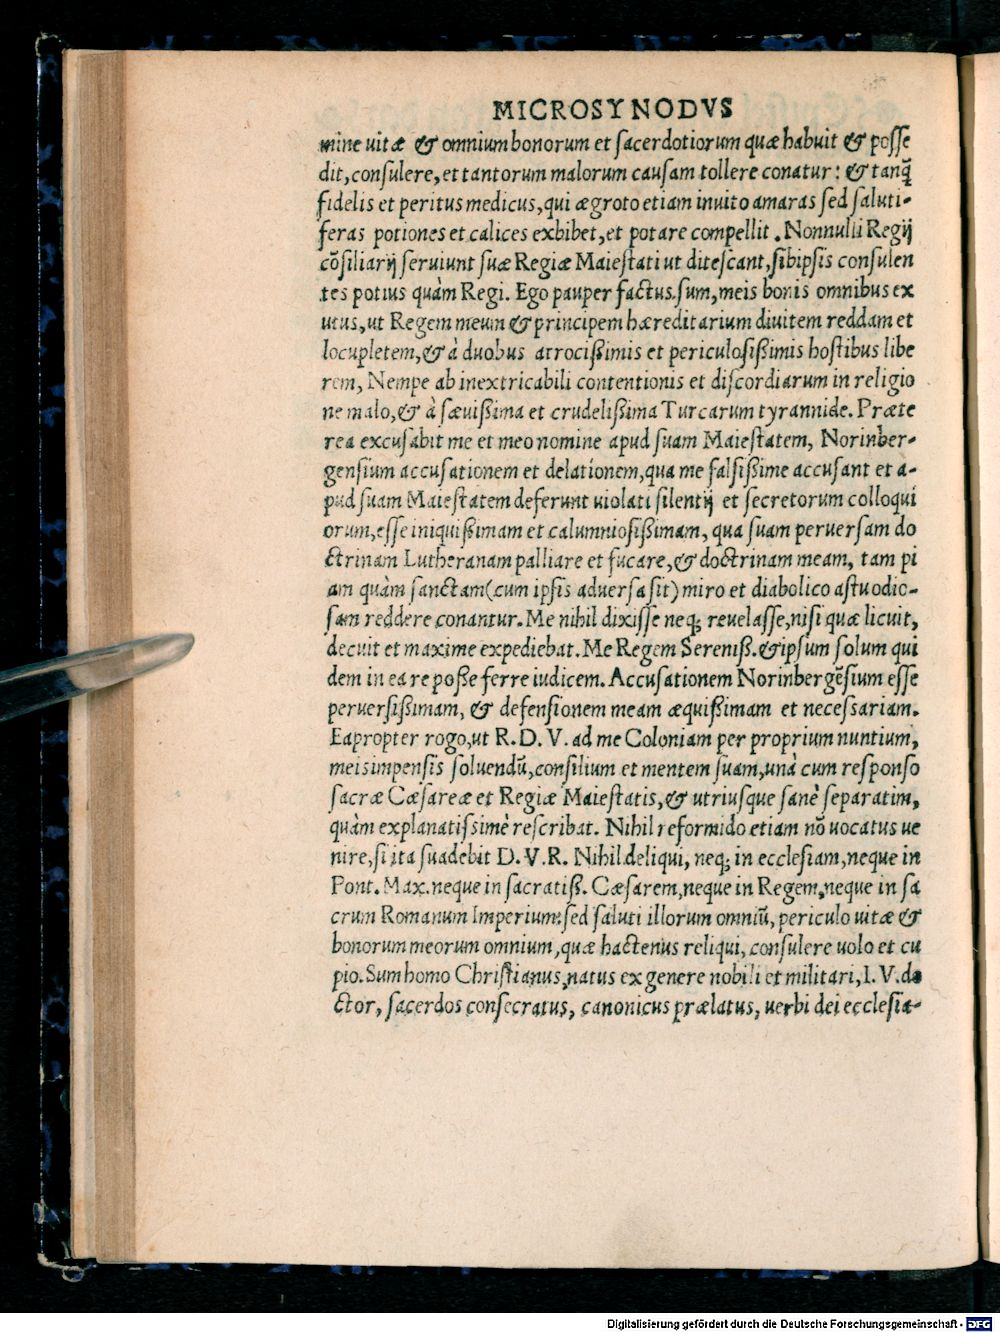 MICROSYNODVS
mine uitæ & omnium bonorum et sacerdotiorum quæ habuit & posse
dit, consulere, et tantorum malorum causam tollere conatur: & tanq̃
fidelis et peritus medicus, qui ægroto etiam inuito amaras sed saluti-
feras potiones et calices exhibet, et potare compellit. Nonnulli Regij
cõsiliarij seruiunt suæ Regiæ Maiestati ut ditescant, sibipsis consulen
tes potius quàm Regi. Ego pauper factus sum, meis bonis omnibus ex
utus, ut Regem meum & principem hæreditarium diuitem reddam et
locupletem, & à duobus atrocißimis et periculosißimis hostibus libe
rem, Nempe ab inextricabili contentionis et discordiarum in religio
ne malo, & à sæuißima et crudelißima Turcarum tyrannide. Præte
rea excusabit me et meo nomine apud suam Maiestatem, Norinber-
gensium accusationem et delationem, qua me falsißime accusant et a-
pud suam Maiestatem deferunt uiolati silentij et secretorum colloqui
orum, esse iniquißimam et calumniosißimam, qua suam peruersam do
ctrinam Lutheranam palliare et fucare, & doctrinam meam, tam pi
am quàm sanctam (cum ipsis aduersa sit) miro et diabolico astu odio-
sam reddere conantur. Me nihil dixisse neq; reuelasse, nisi quæ licuit,
decuit et maxime expediebat. Me Regem Sereniß. & ipsum solum qui
dem in ea re poße ferre iudicem. Accusationem Norinbergẽsium esse
peruersißimam, & defensionem meam æquißimam et necessariam.
Eapropter rogo, ut R. D. V. ad me Coloniam per proprium nuntium,
meis impensis soluendũ, consilium et mentem suam, unà cum responso
sacræ Cæsareæ et Regiæ Maiestatis, & utriusque sanè separatim,
quàm explanatissimè rescribat. Nihil reformido etiam nõ uocatus ue
nire, si ita suadebit D. V. R. Nihil deliqui, neq; in ecclesiam, neque in
Pont. Max. neque in sacratiß. Cæsarem, neque in Regem, neque in sa
crum Romanum Imperium: sed saluti illorum omniũ, periculo uitæ &
bonorum meorum omnium, quæ hactenus reliqui, consulere uolo et cu
pio. Sum homo Christianus, natus ex genere nobili et militari, I. V. do
ctor, sacerdos consecratus, canonicus prælatus, uerbi dei ecclesia-
Digitalisierung gefördert durch die Deutsche Forschungsgemeinschaft - DFG